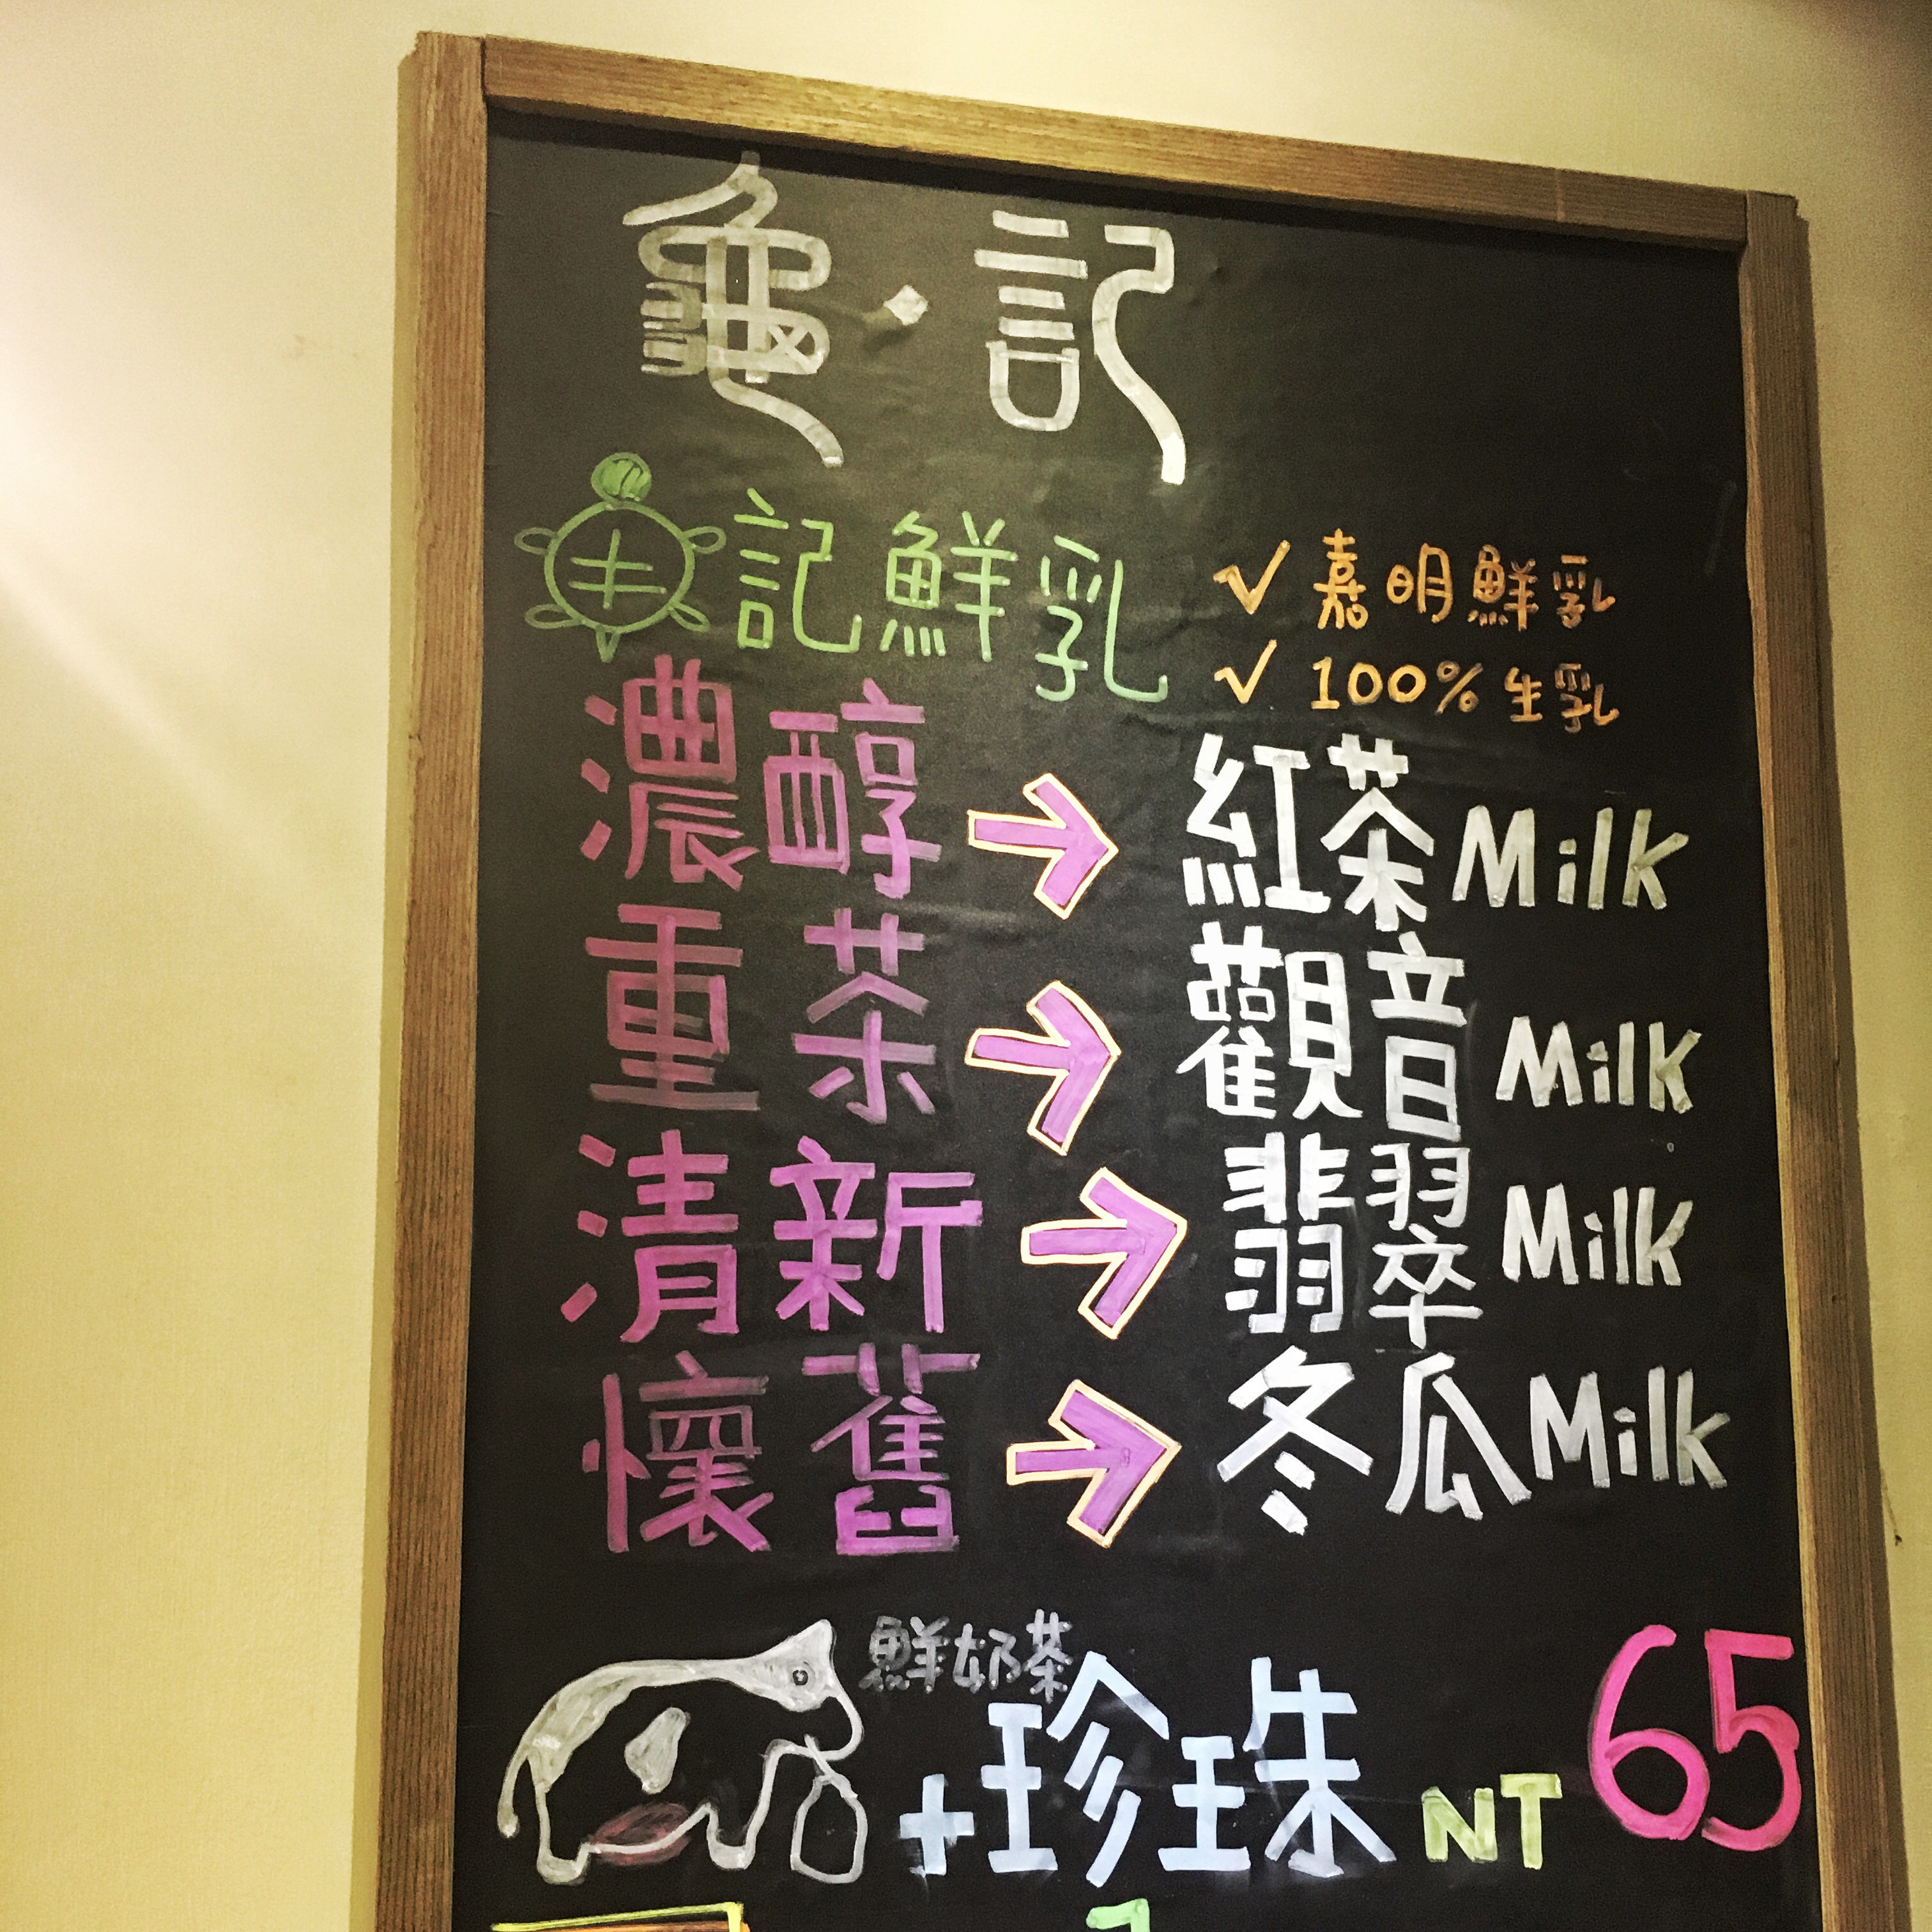 龜·記
記鮮乳
✓嘉明鮮乳
✓100%生乳
濃醇→紅茶Milk
重茶→觀音Milk
清新→翡翠Milk
懷舊→冬瓜Milk
鮮奶茶
+珍珠 NT 65